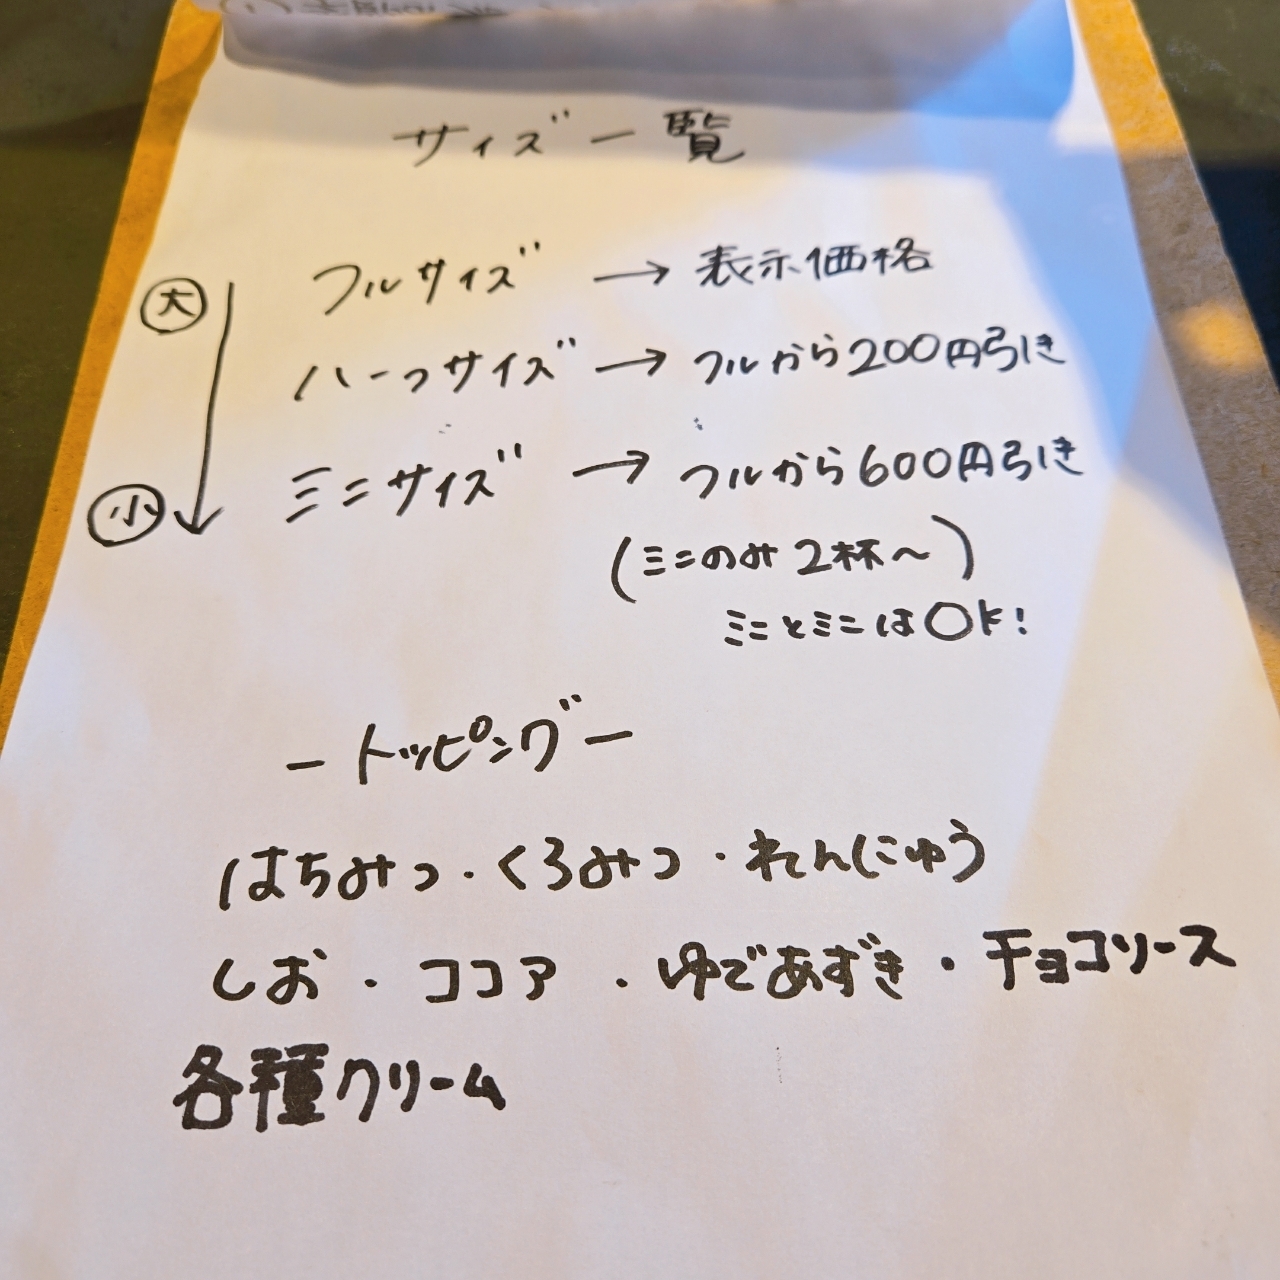 サイズ一覧
大 フルサイズ → 表示価格
ハーフサイズ → フルから200円引き
小 ミニサイズ → フルから600円引き
(ミニのみ2杯〜)
ミニとミニはOK!
ートッピングー
はちみつ・くろみつ・れんにゅう
しお・ココア・ゆであずき・チョコソース
各種クリーム